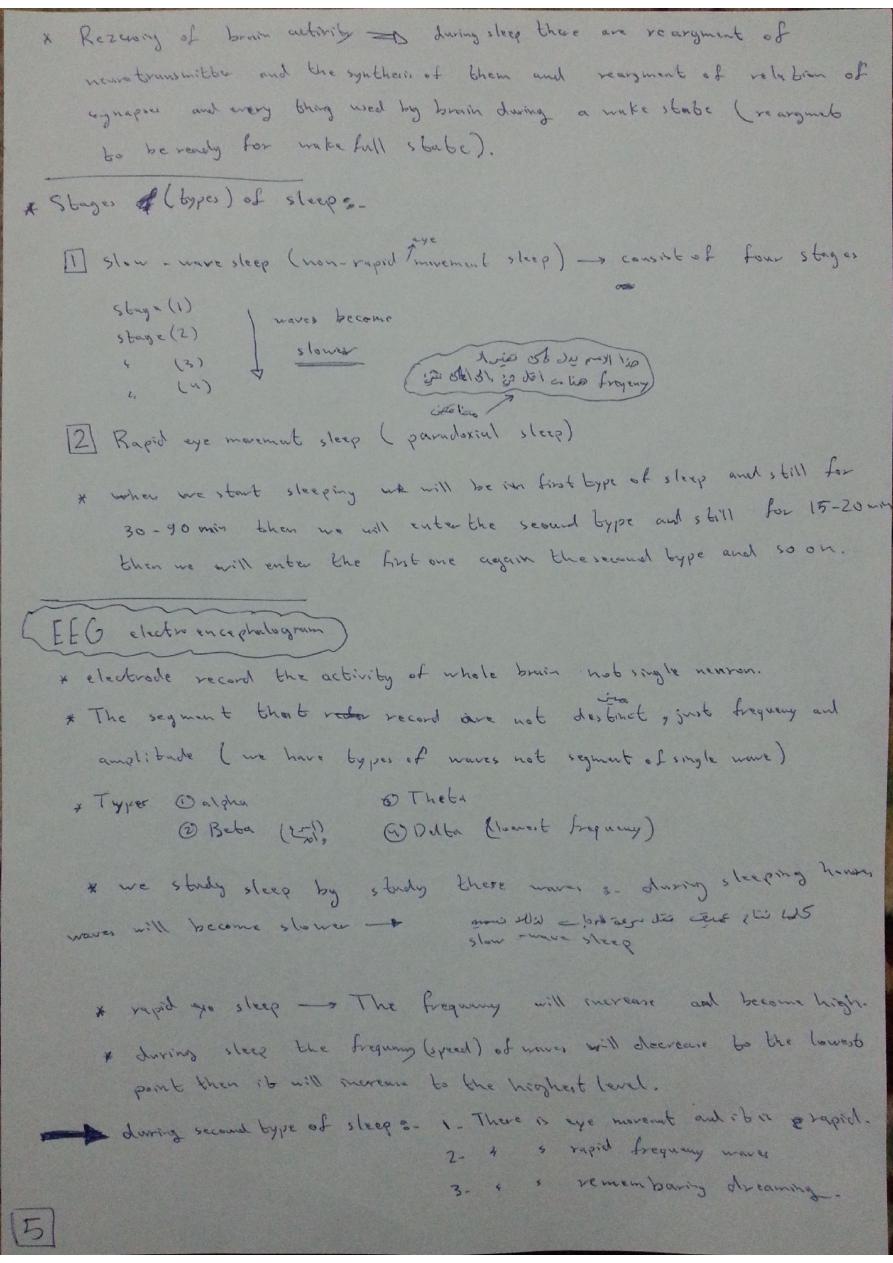 * Rezeroing of brain activity ⇒ during sleep there are reargment of
neurotransmitter and the synthesis of them and reargment of relation of
synapses and every thing used by brain during a wake state (reargment
to be ready for wake full state).
* Stages (types) of sleep:-
1 slow-wave sleep (non-rapid eye movement sleep) → consist of four stages
stage (1)
stage (2)
" (3)
" (4)
waves become
slower
هذا الاسم يدل على
frequency
2 Rapid eye movement sleep (paradoxial sleep)
* when we start sleeping we will be in first type of sleep and still for
30-90 min then we will enter the second type and still for 15-20 min
then we will enter the first one again the second type and so on.
EEG electroencephalogram
* electrode record the activity of whole brain not single neuron.
* The segment that record are not destinct, just frequency and
amplitude (we have types of waves not segment of single wave)
* Types ① alpha ③ Theta
② Beta ④ Delta (lowest frequency)
* we study sleep by study there waves :- during sleeping
waves will become slower →
slow-wave sleep
* rapid eye sleep → The frequency will increase and become high.
* during sleep the frequency (speed) of waves will decrease to the lowest
point then it will increase to the highest level.
→ during second type of sleep:- 1- There is eye movement and it is rapid.
2- " " rapid frequency waves
3- " " remembaring dreaming.
5